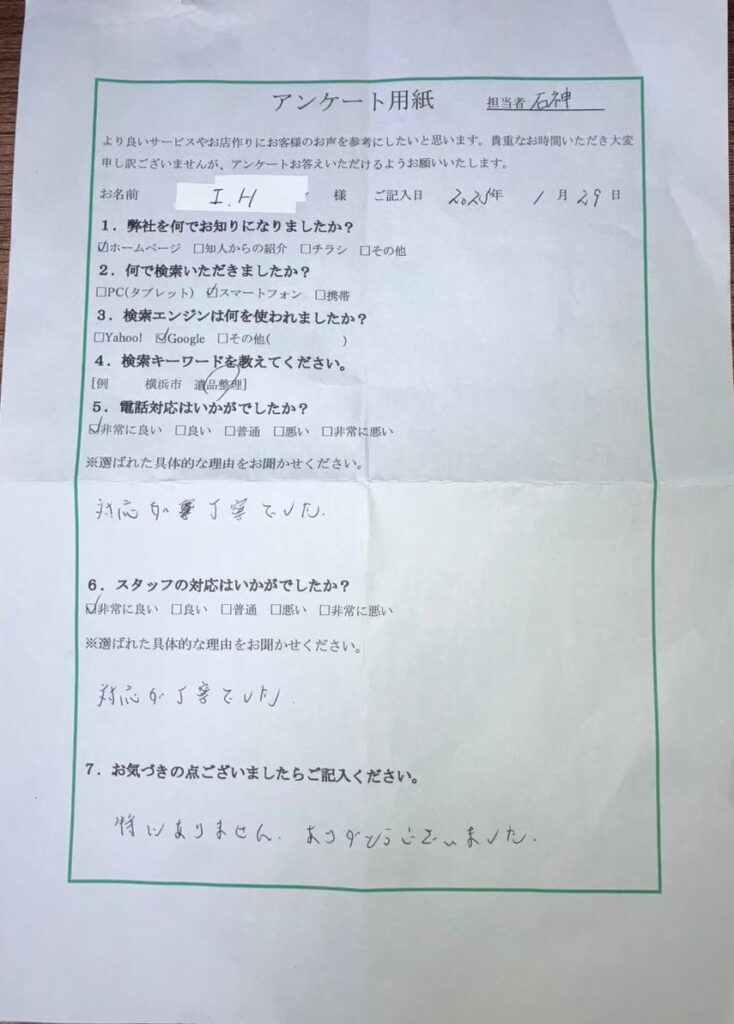 アンケート用紙 担当者 石神
より良いサービスやお店作りにお客様のお声を参考にしたいと思います。貴重なお時間いただき大変
申し訳ございませんが、アンケートお答えいただけるようお願いいたします。
お名前 I.H 様 ご記入日 2025年 1月29日
1．弊社を何でお知りになりましたか？
☑ホームページ □知人からの紹介 □チラシ □その他
2．何で検索いただきましたか？
□PC(タブレット) ☑スマートフォン □携帯
3．検索エンジンは何を使われましたか？
□Yahoo! ☑Google □その他( )
4．検索キーワードを教えてください。
[例 横浜市 遺品整理]
5．電話対応はいかがでしたか？
☑非常に良い □良い □普通 □悪い □非常に悪い
※選ばれた具体的な理由をお聞かせください。
対応が丁寧でした.
6．スタッフの対応はいかがでしたか？
☑非常に良い □良い □普通 □悪い □非常に悪い
※選ばれた具体的な理由をお聞かせください。
対応が丁寧でした.
7．お気づきの点ございましたらご記入ください。
特にありません. ありがとうございました.